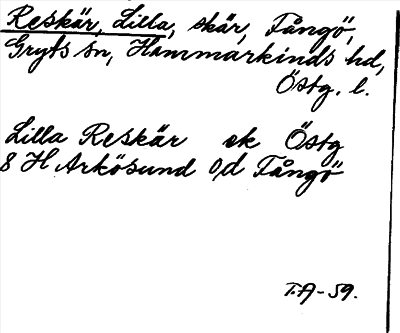 Reskär, Lilla, skär, Fångö,
Gryts sn, Hammarkinds hd,
Östg. l.
Lilla Reskär ek Östg
8 H Arkösund o,d Fångö
T.A-59.